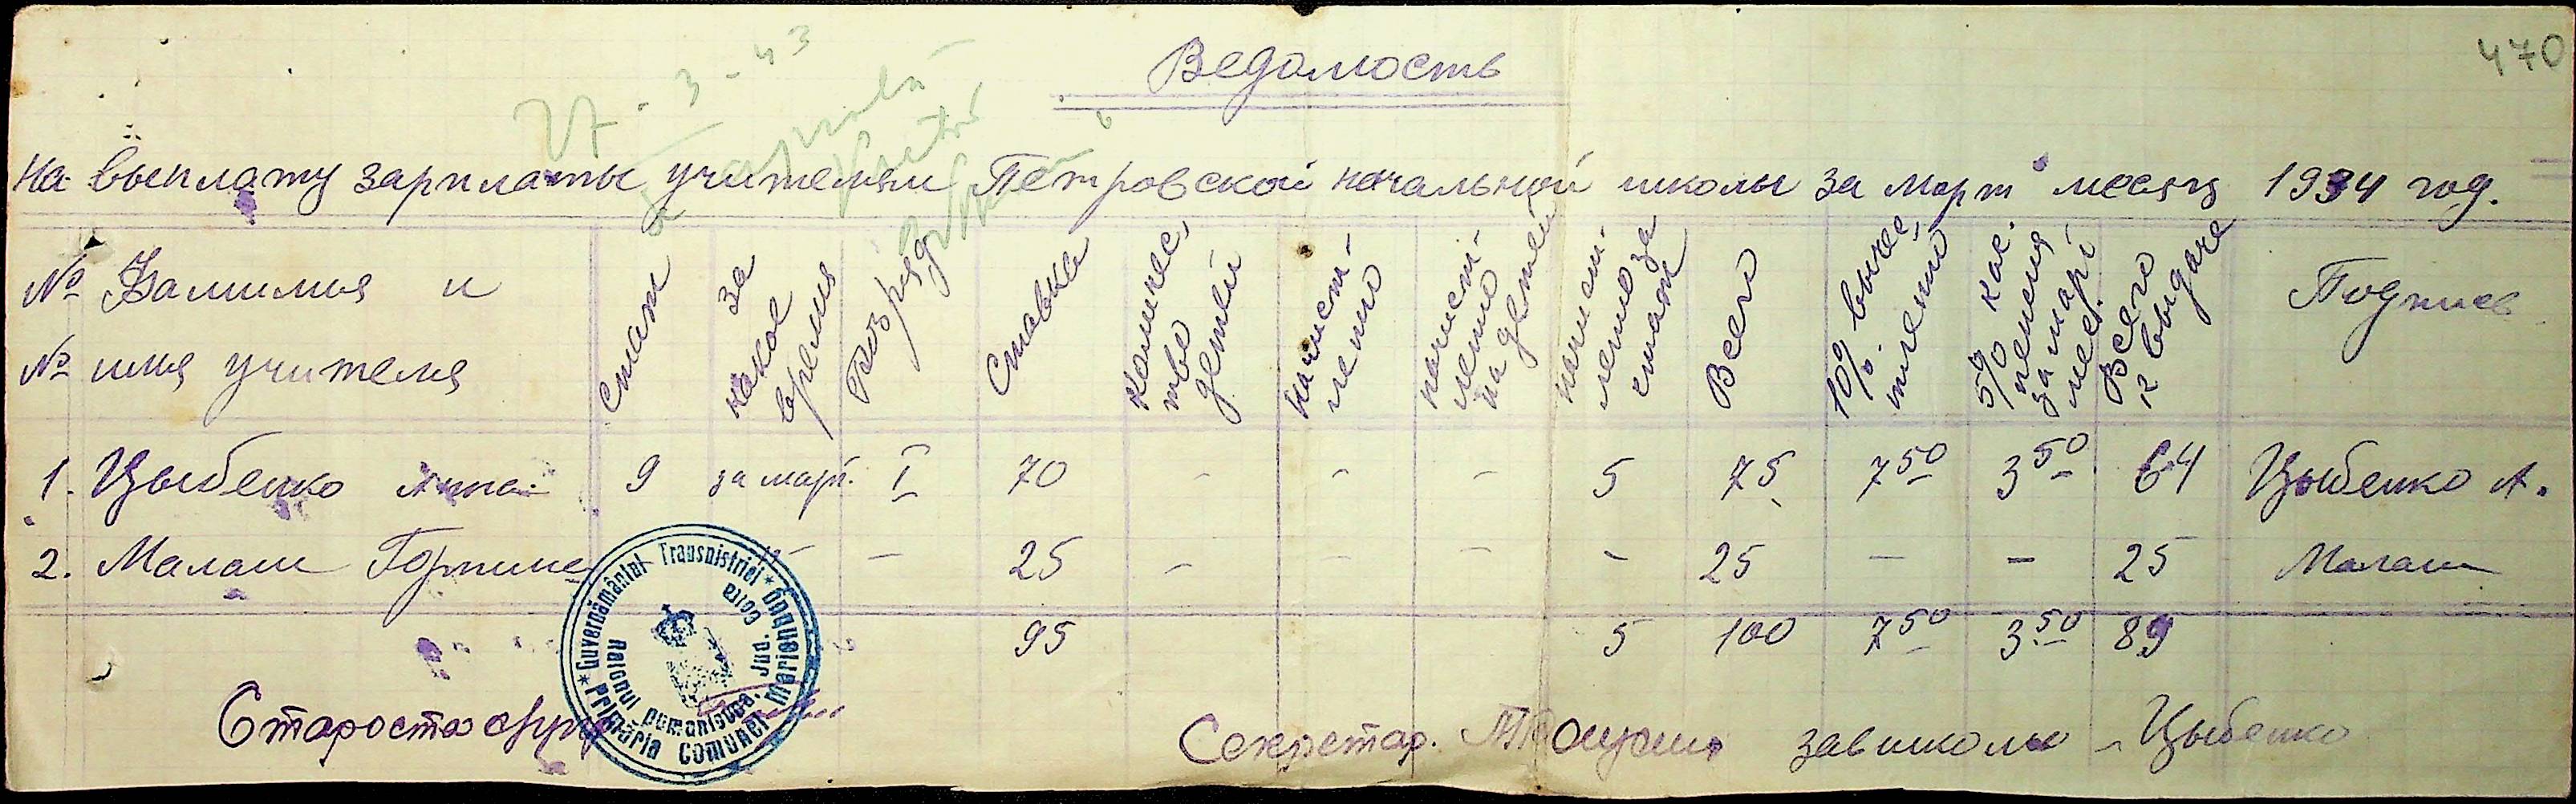 470
27-3-43
Ведомость
на выплату зарплаты учителям Петровской начальной школы за март месяц 1934 год.
№ Фамилия и
№ имя учителя
Стаж
за какое время
Розряд
Ставка
Количес, тво детей
начисл- лено
начисл- лено на детей
начисл- лено за стаж
Всего
10% вычес, тлений
5% пенсия за март мес.
Всего к выдаче
Подпись
1. Цыбенко Анна 9 за март. I 70 - - - 5 75 7 50 3 50 64 Цыбенко А.
2. Малаш Горпина -"- - 25 - - - - 25 - - 25 Малаш
95 5 100 7 50 3 50 89
Староста
Секретар.
завшколы - Цыбенко
* Guvernământul Transnistriei * Primăria Comunei
Raionul Jud. Golta